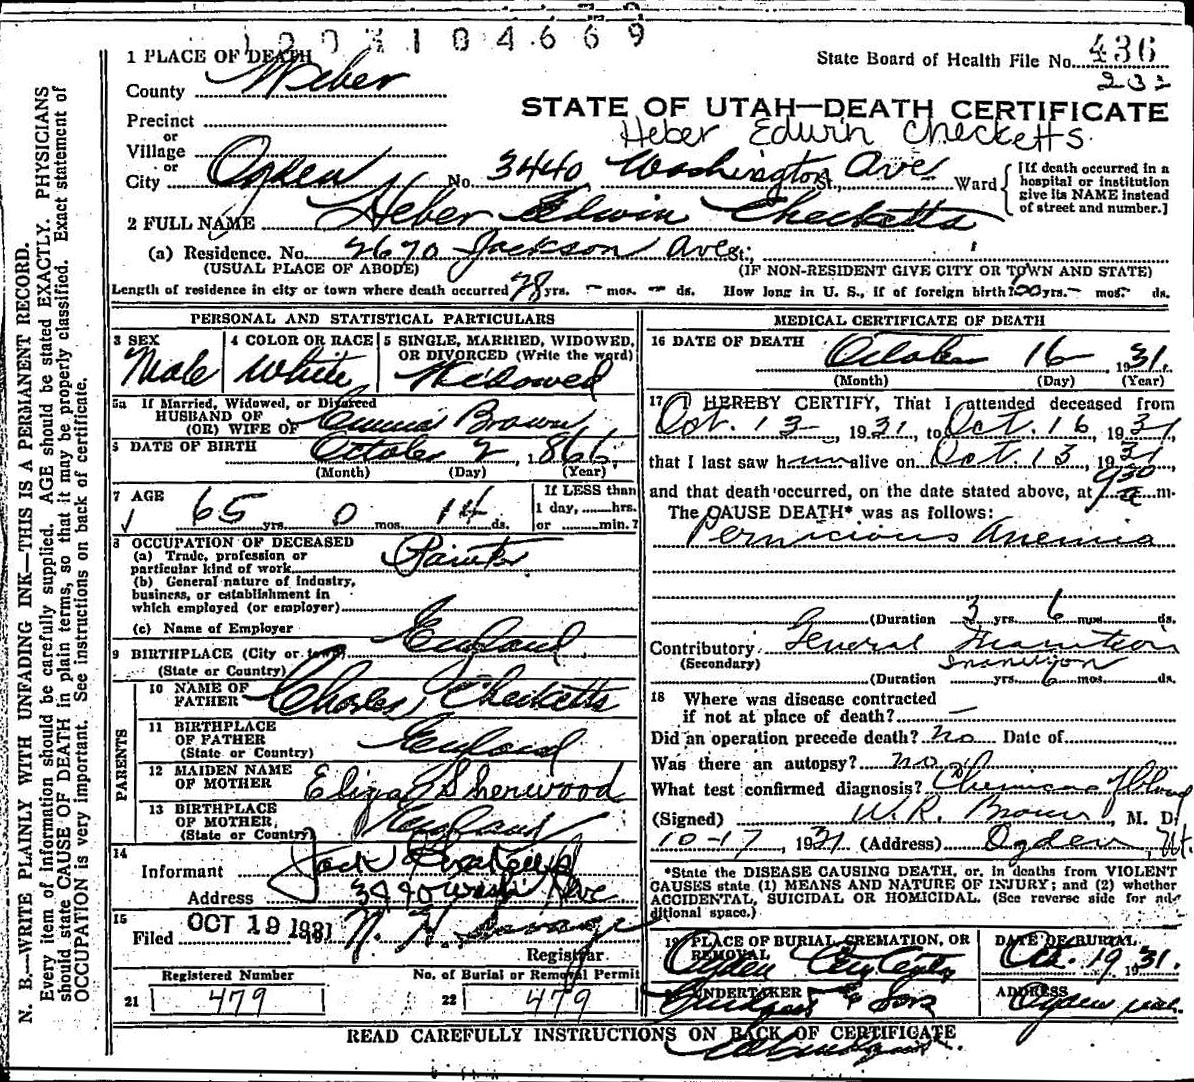 1003104669
1 PLACE OF DEATH
County Weber
State Board of Health File No. 436
232
STATE OF UTAH—DEATH CERTIFICATE
Heber Edwin Checketts
Precinct
or
Village
or
City Ogden No. 3440 Washington Ave. St., Ward
[If death occurred in a hospital or institution give its NAME instead of street and number.]
2 FULL NAME Heber Edwin Checketts
(a) Residence. No. 2670 Jackson Ave St.,
(USUAL PLACE OF ABODE) (IF NON-RESIDENT GIVE CITY OR TOWN AND STATE)
Length of residence in city or town where death occurred 28 yrs. – mos. – ds. How long in U. S., if of foreign birth? yrs. – mos. ds.
PERSONAL AND STATISTICAL PARTICULARS
3 SEX 4 COLOR OR RACE 5 SINGLE, MARRIED, WIDOWED, OR DIVORCED (Write the word)
Male White Widowed
5a If Married, Widowed, or Divorced
HUSBAND OF
(OR) WIFE OF Emma Brown
6 DATE OF BIRTH October 2, 1866
(Month) (Day) (Year)
7 AGE 65 yrs. 0 mos. 14 ds.
If LESS than
1 day, hrs.
or min.?
8 OCCUPATION OF DECEASED
(a) Trade, profession or
particular kind of work Painter
(b) General nature of Industry,
business, or establishment in
which employed (or employer)
(c) Name of Employer
9 BIRTHPLACE (City or town) England
(State or Country)
PARENTS
10 NAME OF
FATHER Charles Checketts
11 BIRTHPLACE
OF FATHER England
(State or Country)
12 MAIDEN NAME
OF MOTHER Eliza Sherwood
13 BIRTHPLACE
OF MOTHER, England
(State or Country)
14
Informant Jack
Address 3440 Wash Ave
15
Filed OCT 19 1931 Savage
Registrar
Registered Number No. of Burial or Removal Permit
21 479 22 479
MEDICAL CERTIFICATE OF DEATH
16 DATE OF DEATH October 16, 1931.
(Month) (Day) (Year)
17 I HEREBY CERTIFY, That I attended deceased from
Oct. 13, 1931, to Oct. 16, 1931,
that I last saw him alive on Oct. 13, 1931
and that death occurred, on the date stated above, at 930 a m.
The CAUSE DEATH* was as follows:
Pernicious Anemia
(Duration 3 yrs. 6 mos. ds.
Contributory General Inanition
(Secondary) Inanition
(Duration yrs. 6 mos. ds.
18 Where was disease contracted
if not at place of death? —
Did an operation precede death? no Date of
Was there an autopsy? no
What test confirmed diagnosis? Chemical of blood
(Signed) W. R. Brown, M. D.
10-17, 1931 (Address) Ogden, Ut.
*State the DISEASE CAUSING DEATH, or, in deaths from VIOLENT
CAUSES state (1) MEANS AND NATURE OF INJURY; and (2) whether
ACCIDENTAL, SUICIDAL OR HOMICIDAL. (See reverse side for ad-
ditional space.)
19 PLACE OF BURIAL, CREMATION, OR REMOVAL DATE OF BURIAL
Ogden City Oct. 19, 1931.
UNDERTAKER & Sons ADDRESS Ogden Utah
READ CAREFULLY INSTRUCTIONS ON BACK OF CERTIFICATE
N. B.—WRITE PLAINLY WITH UNFADING INK—THIS IS A PERMANENT RECORD.
Every item of information should be carefully supplied. AGE should be stated EXACTLY. PHYSICIANS
should state CAUSE OF DEATH in plain terms, so that it may be properly classified. Exact statement of
OCCUPATION is very important. See instructions on back of certificate.